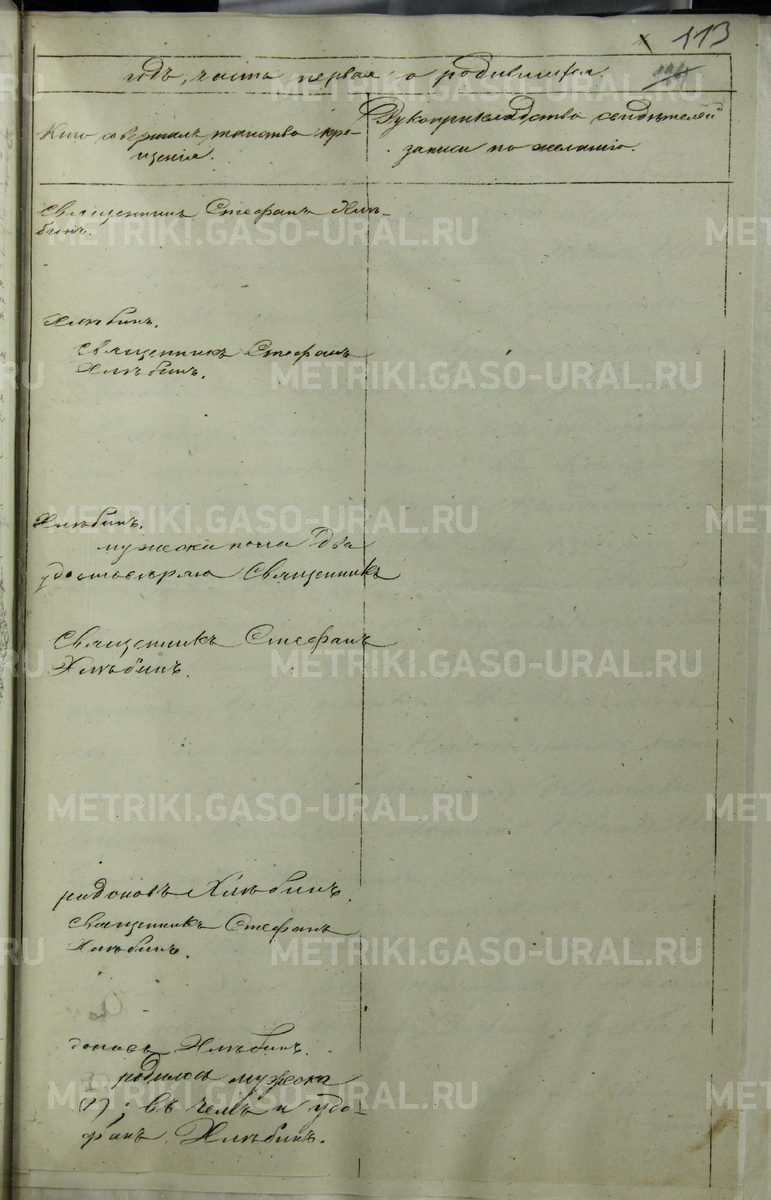 113
годъ, часть первая о родившихся.
Кто совершалъ таинство кре-
щенія.
Рукоприкладство свидѣтелей
записи по желанію.
Священникъ Стефанъ Хлѣ-
бинъ.
Хлѣбинъ.
Священникъ Стефанъ
Хлѣбинъ.
Хлѣбинъ.
мужеска пола два
удостовѣряю Священникъ
Священникъ Стефанъ
Хлѣбинъ.
Хлѣбинъ.
Священникъ Стефанъ
Хлѣбинъ.
Хлѣбинъ.
родилось мужеска
въ чемъ и удо-
Хлѣбинъ.
METRIKI.GASO-URAL.RU